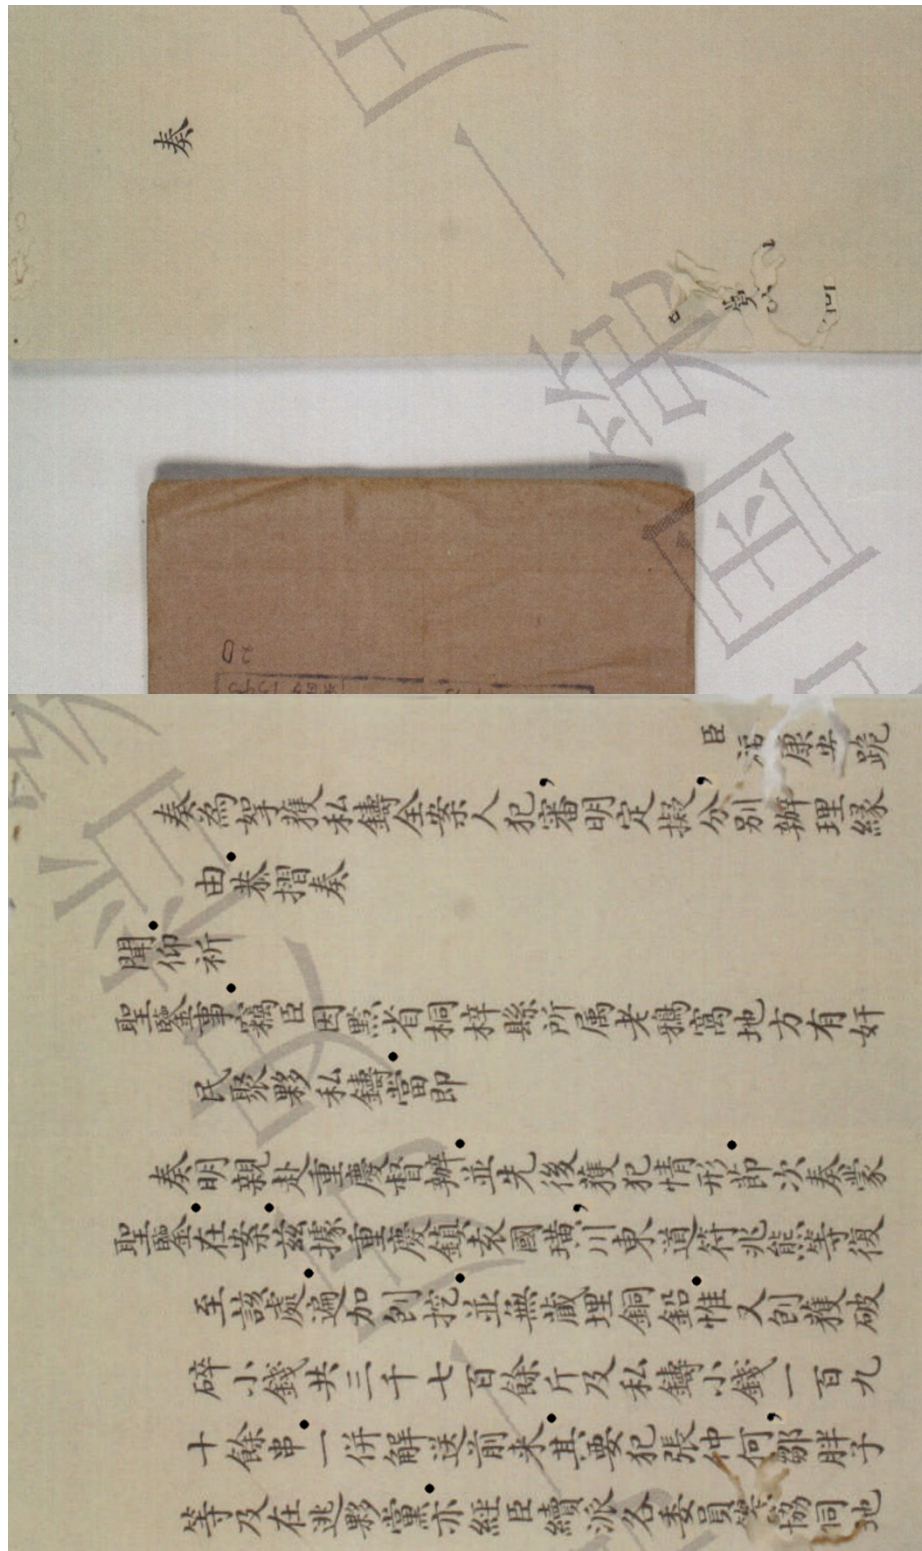 奏
20
臣福康安跪
奏為拏獲私鑄全案人犯,審明定擬,分別辦理緣
由.恭摺奏
聞.仰祈
聖鑒事.竊臣因黔省桐梓縣所属老鴉窩地方有奸
民聚夥私鑄.當即
奏明親赴重慶督辦.並先後獲犯情形.節次奏蒙
聖鑒.在案.兹據重慶鎮袁國璜,川東道符兆熊等復
至該處.遍加刨挖.並無藏埋銅鉛.惟又刨獲破
碎小錢共三千七百餘斤及私鑄小錢一百九
十餘串.一併解送前来.其要犯張仲何,鄒胖子
等及在逃夥黨.亦經臣續派各委員等協同地